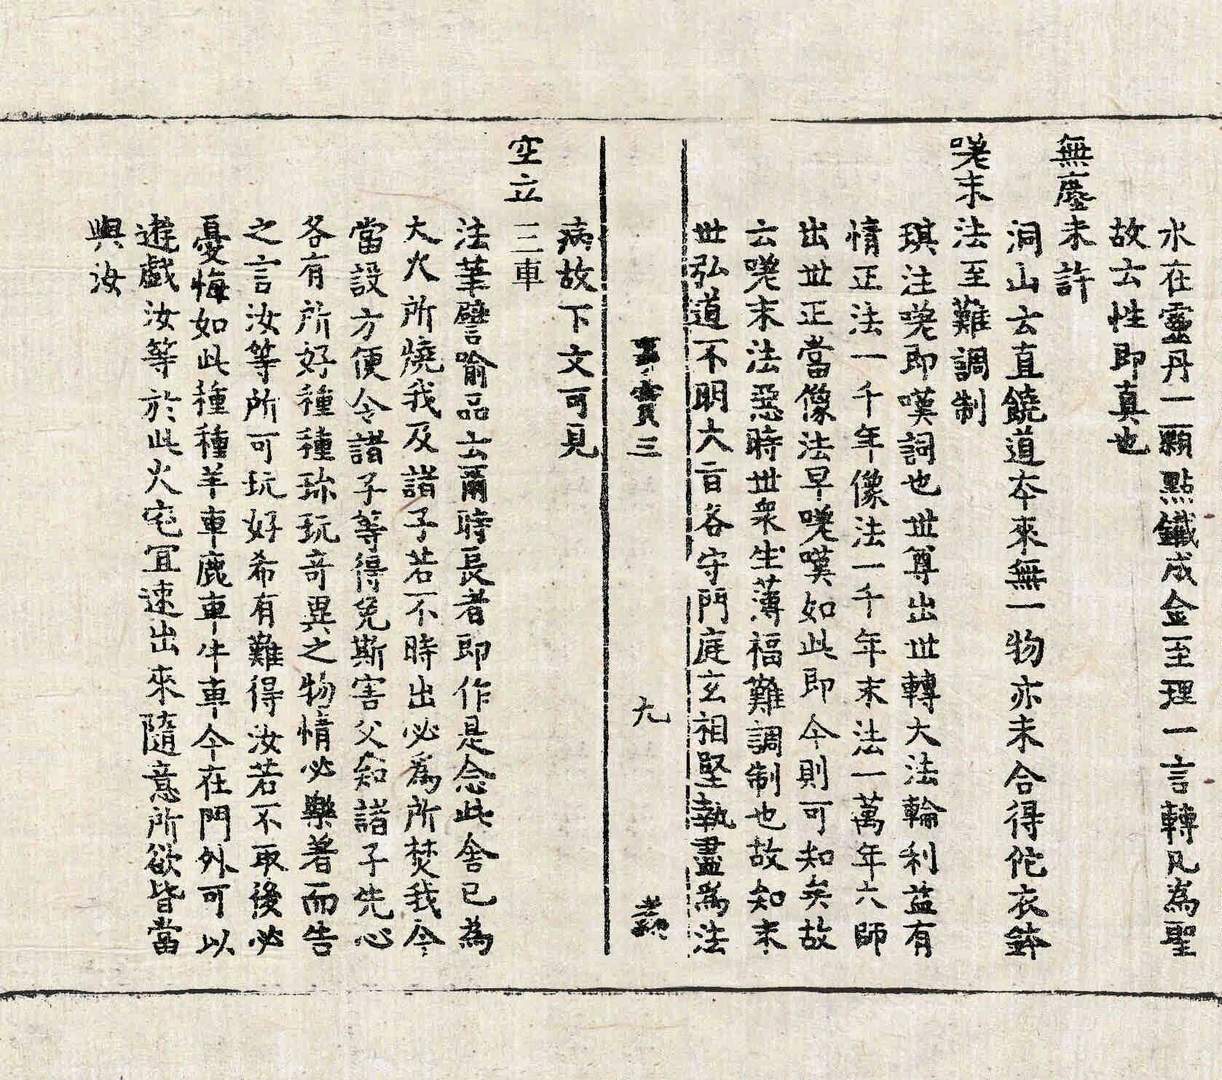 水在靈丹一顆點鐵成金至理一言轉凡為聖
故去性即真也
無塵未許
洞山云直饒道本來無一物亦未合得佗衣鉢
嘆末法至難調制
琪注嘆即嘆詞也世尊出世轉大法輪利益有
情正法一千年像法一千年末法一萬年六師
出世正當像法早嘆嘆如此即今則可知矣故
云嘆末法惡時世衆生薄福難調制也故知末
世弘道不明大旨各守門庭玄相堅執盡為法
事實三 九
病故下文可見
空立三車
法華譬喻品云爾時長者即作是念此舍已為
大火所燒我及諸子若不時出必為所焚我今
當設方便令諸子等得免斯害父知諸子先心
各有所好種種珎玩奇異之物情必樂著而告
之言汝等所可玩好希有難得汝若不取後必
憂悔如此種種羊車鹿車牛車今在門外可以
遊戲汝等於此火宅宜速出來隨意所欲皆當
與汝